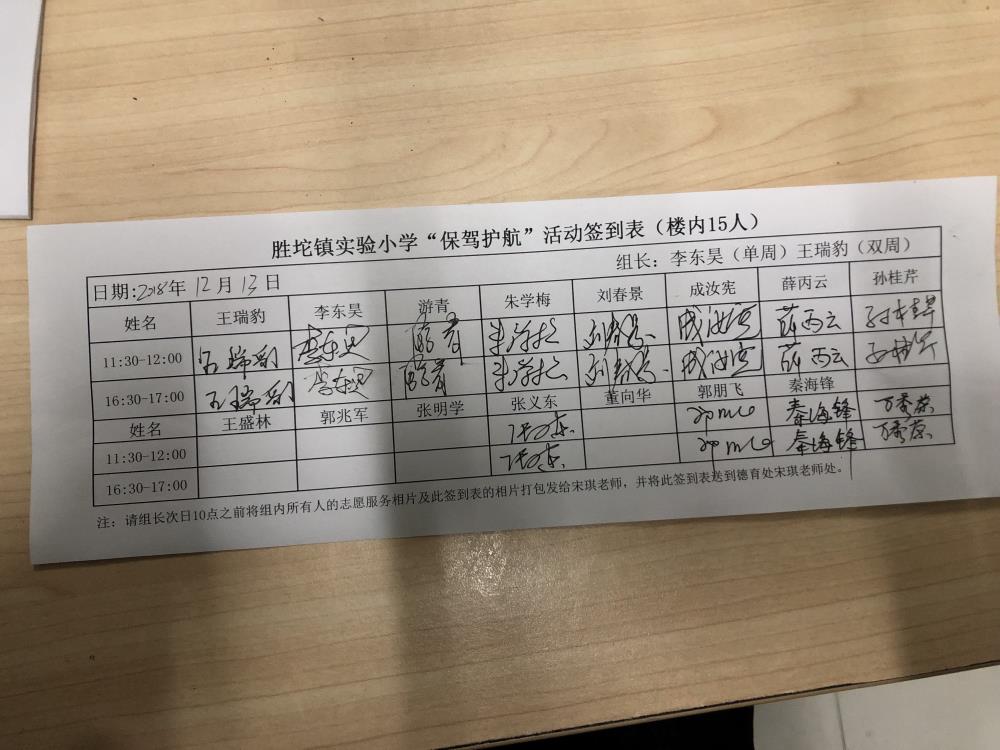 胜坨镇实验小学“保驾护航”活动签到表（楼内15人）
日期:2018年 12月 13日 组长：李东昊（单周）王瑞豹（双周）
姓名 王瑞豹 李东昊 游青 朱学梅 刘春景 成汝宪 薛丙云 孙桂芹
11:30-12:00 王瑞豹 李东昊 游青 朱学梅 刘春景 成汝宪 薛丙云 孙桂芹
16:30-17:00 王瑞豹 李东昊 游青 朱学梅 刘春景 成汝宪 薛丙云 孙桂芹
姓名 王盛林 郭兆军 张明学 张义东 董向华 郭朋飞 秦海锋
11:30-12:00 张义东 秦海锋
16:30-17:00 张义东 秦海锋
注：请组长次日10点之前将组内所有人的志愿服务相片及此签到表的相片打包发给宋琪老师，并将此签到表送到德育处宋琪老师处。